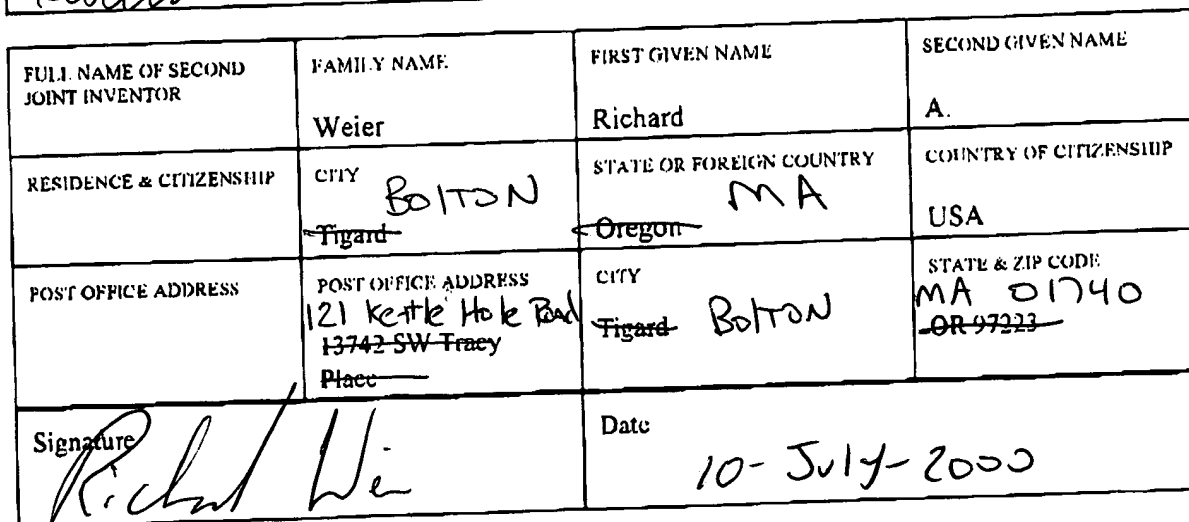 FULL NAME OF SECOND JOINT INVENTOR
FAMILY NAME
Weier
FIRST GIVEN NAME
Richard
SECOND GIVEN NAME
A.
RESIDENCE & CITIZENSHIP
CITY
BOLTON
Tigard
STATE OR FOREIGN COUNTRY
MA
Oregon
COUNTRY OF CITIZENSHIP
USA
POST OFFICE ADDRESS
POST OFFICE ADDRESS
121 Kettle Hole Road
13742 SW Tracy
Place
CITY
Tigard BOLTON
STATE & ZIP CODE
MA 01740
OR 97223
Signature
Richard Wei
Date
10-July-2000